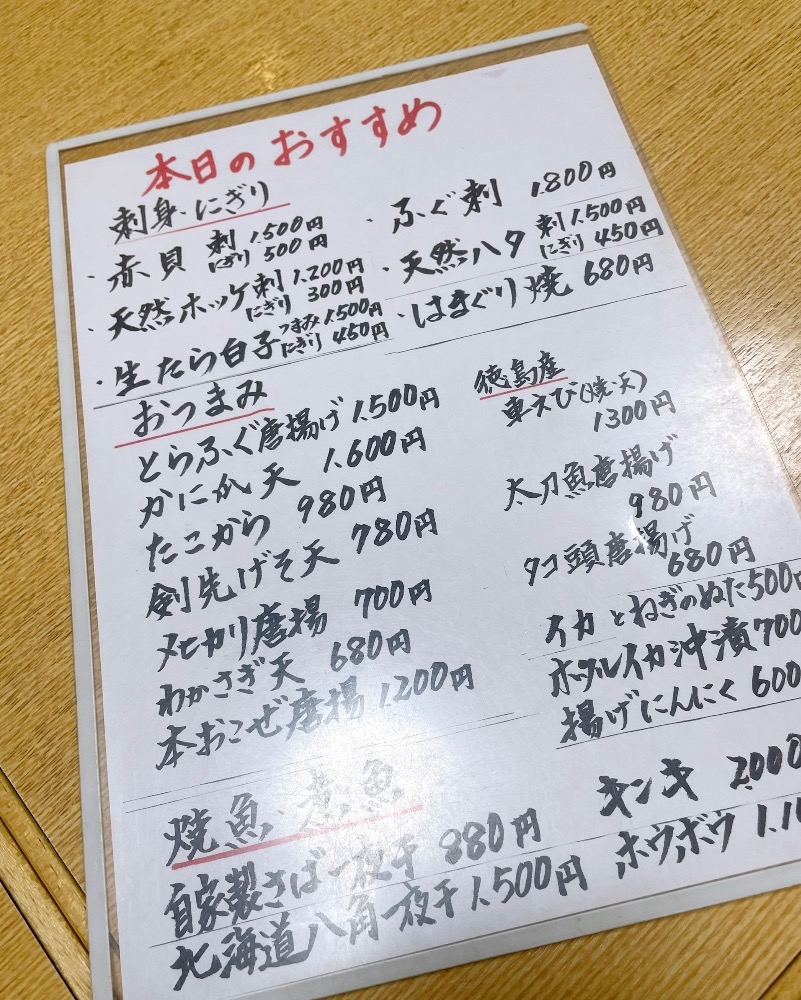 本日のおすすめ
刺身・にぎり
・赤貝 刺 1.500円
にぎり 500円
・天然ホッケ 刺 1.200円
にぎり 300円
・生たら白子 つまみ 1.500円
にぎり 450円
・ふぐ刺 1.800円
・天然ハタ 刺 1.500円
にぎり 450円
・はまぐり焼 680円
おつまみ
とらふぐ唐揚げ 1.500円
かにかま天 1.600円
たこから 980円
剣先げそ天 780円
メヒカリ唐揚 700円
わかさぎ天 680円
本おこぜ唐揚 1.200円
徳島産
車えび(焼・天)
1300円
太刀魚唐揚げ
980円
タコ頭唐揚げ
680円
イカとねぎのぬた 500円
ホタルイカ沖漬 700
揚げにんにく 600
焼魚・煮魚
自家製さば一夜干 880円
北海道八角一夜干 1.500円
キンキ 2.000
ホウボウ 1.1